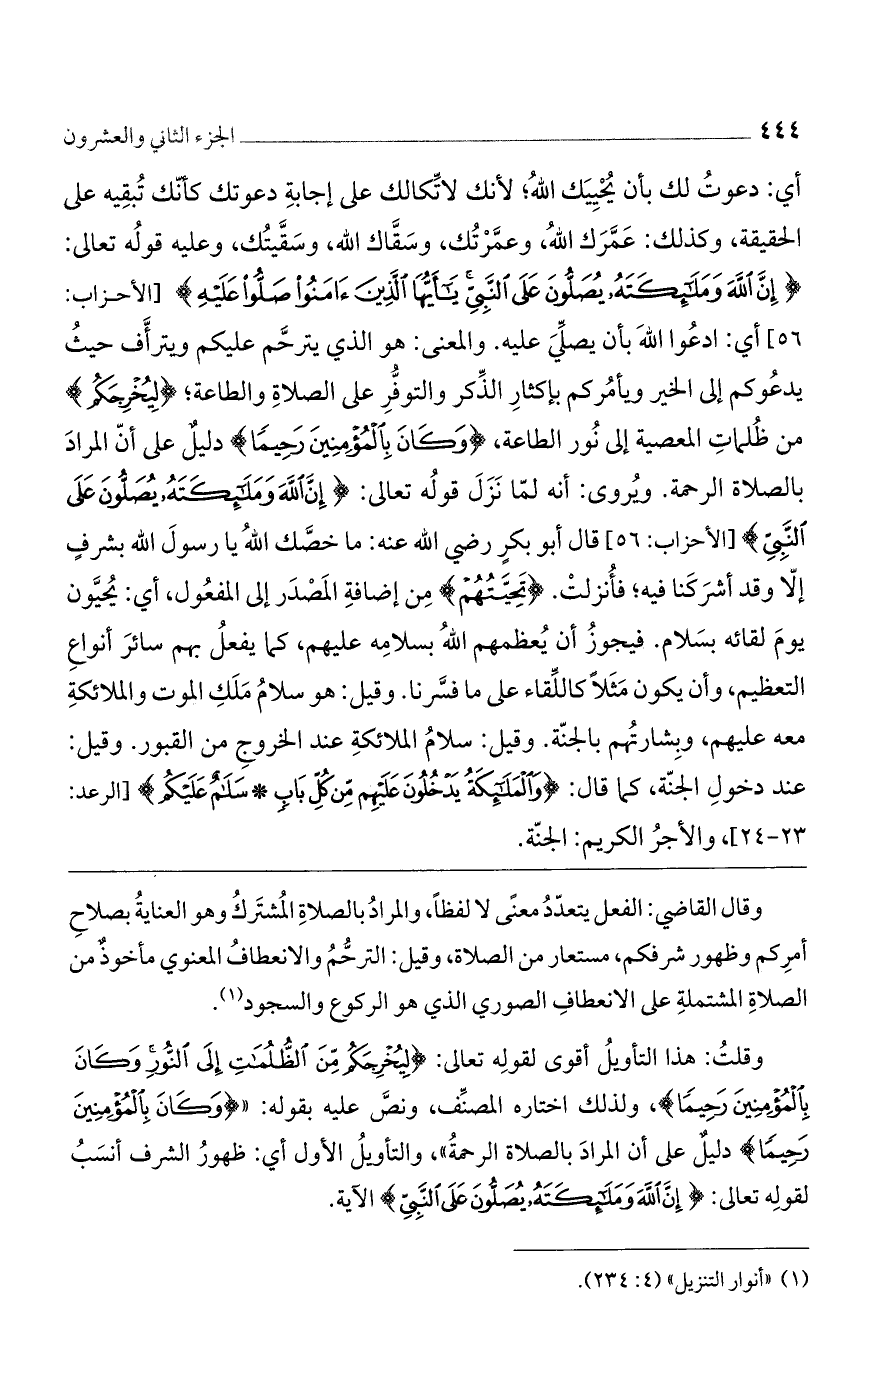 ٤٤٤ الجزء الثاني والعشرون
أي: دعوتُ لك بأن يُحْيِيَك اللهُ؛ لأنك لاتِّكالك على إجابةِ دعوتك كأنّك تُبقِيه على
الحقيقة، وكذلك: عَمَّرَك اللهُ، وعمَّرْتُك، وسَقَّاك الله، وسَقَّيتُك، وعليه قولُه تعالى:
﴿ إِنَّ ٱللَّهَ وَمَلَٰٓئِكَتَهُۥ يُصَلُّونَ عَلَى ٱلنَّبِيِّ ۚ يَٰٓأَيُّهَا ٱلَّذِينَ ءَامَنُوا۟ صَلُّوا۟ عَلَيْهِ ﴾ [الأحزاب:
٥٦] أي: ادعُوا اللهَ بأن يصلِّيَ عليه. والمعنى: هو الذي يترحَّم عليكم ويترأَّف حيثُ
يدعُوكم إلى الخير ويأمُركم بإكثارِ الذِّكر والتوفُّرِ على الصلاةِ والطاعة؛ ﴿لِيُخْرِجَكُم ﴾
من ظُلماتِ المعصية إلى نُور الطاعة، ﴿وَكَانَ بِٱلْمُؤْمِنِينَ رَحِيمًا﴾ دليلٌ على أنّ المرادَ
بالصلاة الرحمة. ويُروى: أنه لمّا نَزَلَ قولُه تعالى: ﴿ إِنَّ ٱللَّهَ وَمَلَٰٓئِكَتَهُۥ يُصَلُّونَ عَلَى
ٱلنَّبِيِّ ﴾ [الأحزاب: ٥٦] قال أبو بكرٍ رضي الله عنه: ما خصَّك اللهُ يا رسولَ الله بشرفٍ
إلّا وقد أشرَكَنا فيه؛ فأُنزلتْ. ﴿تَحِيَّتُهُمْ﴾ مِن إضافةِ المَصْدَر إلى المفعُول، أي: يُحيَّون
يومَ لقائه بسَلام. فيجوزُ أن يُعظمهم اللهُ بسلامِه عليهم، كما يفعلُ بهم سائرَ أنواعِ
التعظيم، وأن يكون مَثَلاً كاللِّقاء على ما فسَّرنا. وقيل: هو سلامُ مَلَكِ الموت والملائكةِ
معه عليهم، وبِشارتُهم بالجنّة. وقيل: سلامُ الملائكةِ عند الخروجِ من القبور. وقيل:
عند دخولِ الجنّة، كما قال: ﴿وَٱلْمَلَٰٓئِكَةُ يَدْخُلُونَ عَلَيْهِم مِّن كُلِّ بَابٍ * سَلَٰمٌ عَلَيْكُم ﴾ [الرعد:
٢٣-٢٤]، والأجرُ الكريم: الجنّة.
وقال القاضي: الفعل يتعدّدُ معنًى لا لفظاً، والمرادُ بالصلاةِ المُشتَركُ وهو العنايةُ بصلاحِ
أمرِكم وظهور شرفكم، مستعار من الصلاة، وقيل: الترحُّمُ والانعطافُ المعنوي مأخوذٌ من
الصلاةِ المشتملةِ على الانعطافِ الصوري الذي هو الركوع والسجود(١).
وقلتُ: هذا التأويلُ أقوى لقولِه تعالى: ﴿لِيُخْرِجَكُم مِّنَ ٱلظُّلُمَٰتِ إِلَى ٱلنُّورِ ۚ وَكَانَ
بِٱلْمُؤْمِنِينَ رَحِيمًا﴾، ولذلك اختاره المصنِّف، ونصَّ عليه بقوله: «﴿وَكَانَ بِٱلْمُؤْمِنِينَ
رَحِيمًا﴾ دليلٌ على أن المرادَ بالصلاة الرحمةُ»، والتأويلُ الأول أي: ظهورُ الشرف أنسَبُ
لقولِه تعالى: ﴿ إِنَّ ٱللَّهَ وَمَلَٰٓئِكَتَهُۥ يُصَلُّونَ عَلَى ٱلنَّبِيِّ ﴾ الآية.
(١) «أنوار التنزيل» (٤: ٢٣٤).